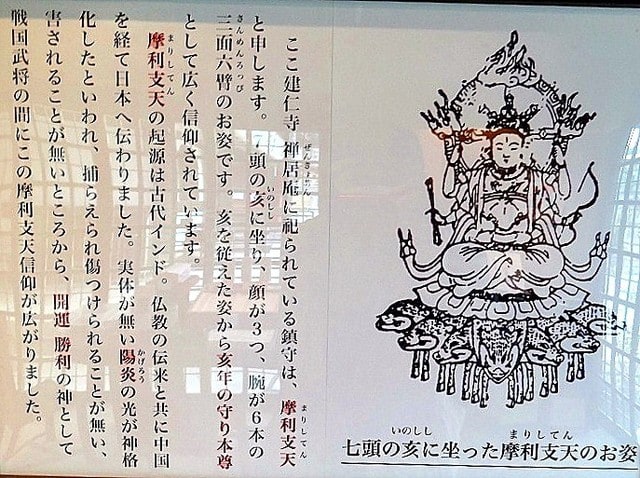 ぜんきょあん まりしてん
ここ建仁寺 禅居庵に祀られている鎮守は、摩利支天
いのしし
と申します。7頭の亥に坐り、顔が3つ、腕が6本の
さんめんろっぴ
三面六臂のお姿です。亥を従えた姿から亥年の守り本尊
として広く信仰されています。
まりしてん
摩利支天の起源は古代インド。仏教の伝来と共に中国
かげろう
を経て日本へ伝わりました。実体が無い陽炎の光が神格
化したといわれ、捕らえられ傷つけられることが無い、
害されることが無いところから、開運 勝利の神として
戦国武将の間にこの摩利支天信仰が広がりました。
いのしし まりしてん
七頭の亥に坐った摩利支天のお姿